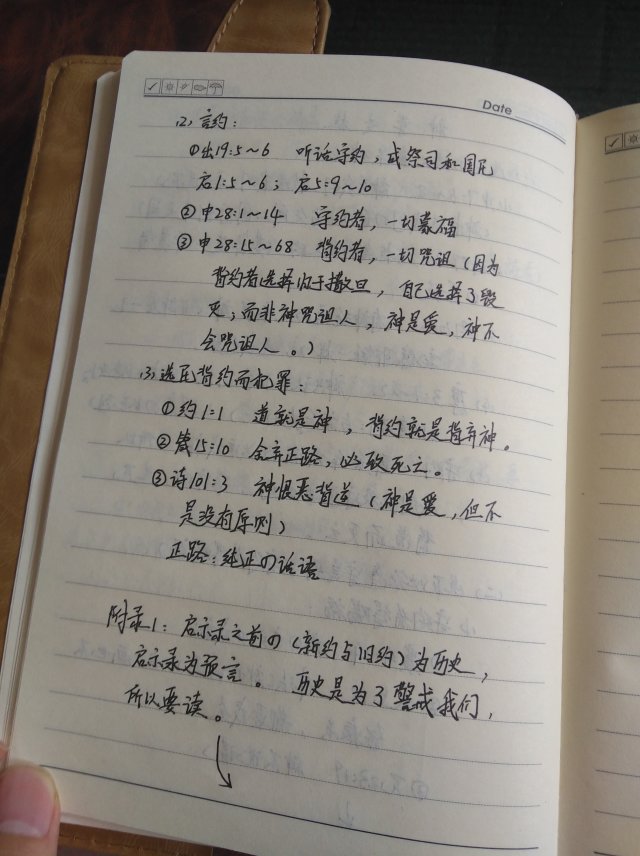 Date
(2) 言约:
①出19:5~6 听话守约,成祭司和国民
启1:5~6; 启5:9~10
②申28:1~14 守约者,一切蒙福
③申28:15~68 背约者,一切咒诅(因为
背约者选择归于撒旦,自己选择了毁
灭;而非神咒诅人,神是爱,神不
会咒诅人。)
(3) 选民背约而犯罪:
①约1:1 道就是神,背约就是背弃神。
②箴15:10 舍弃正路,必致死亡。
③诗101:3 神恨恶背道(神是爱,但不
是没有原则)
正路:纯正の话语
附录1:启示录之前の(新约与旧约)为历史,
启示录为预言。历史是为了警戒我们,
所以要读。